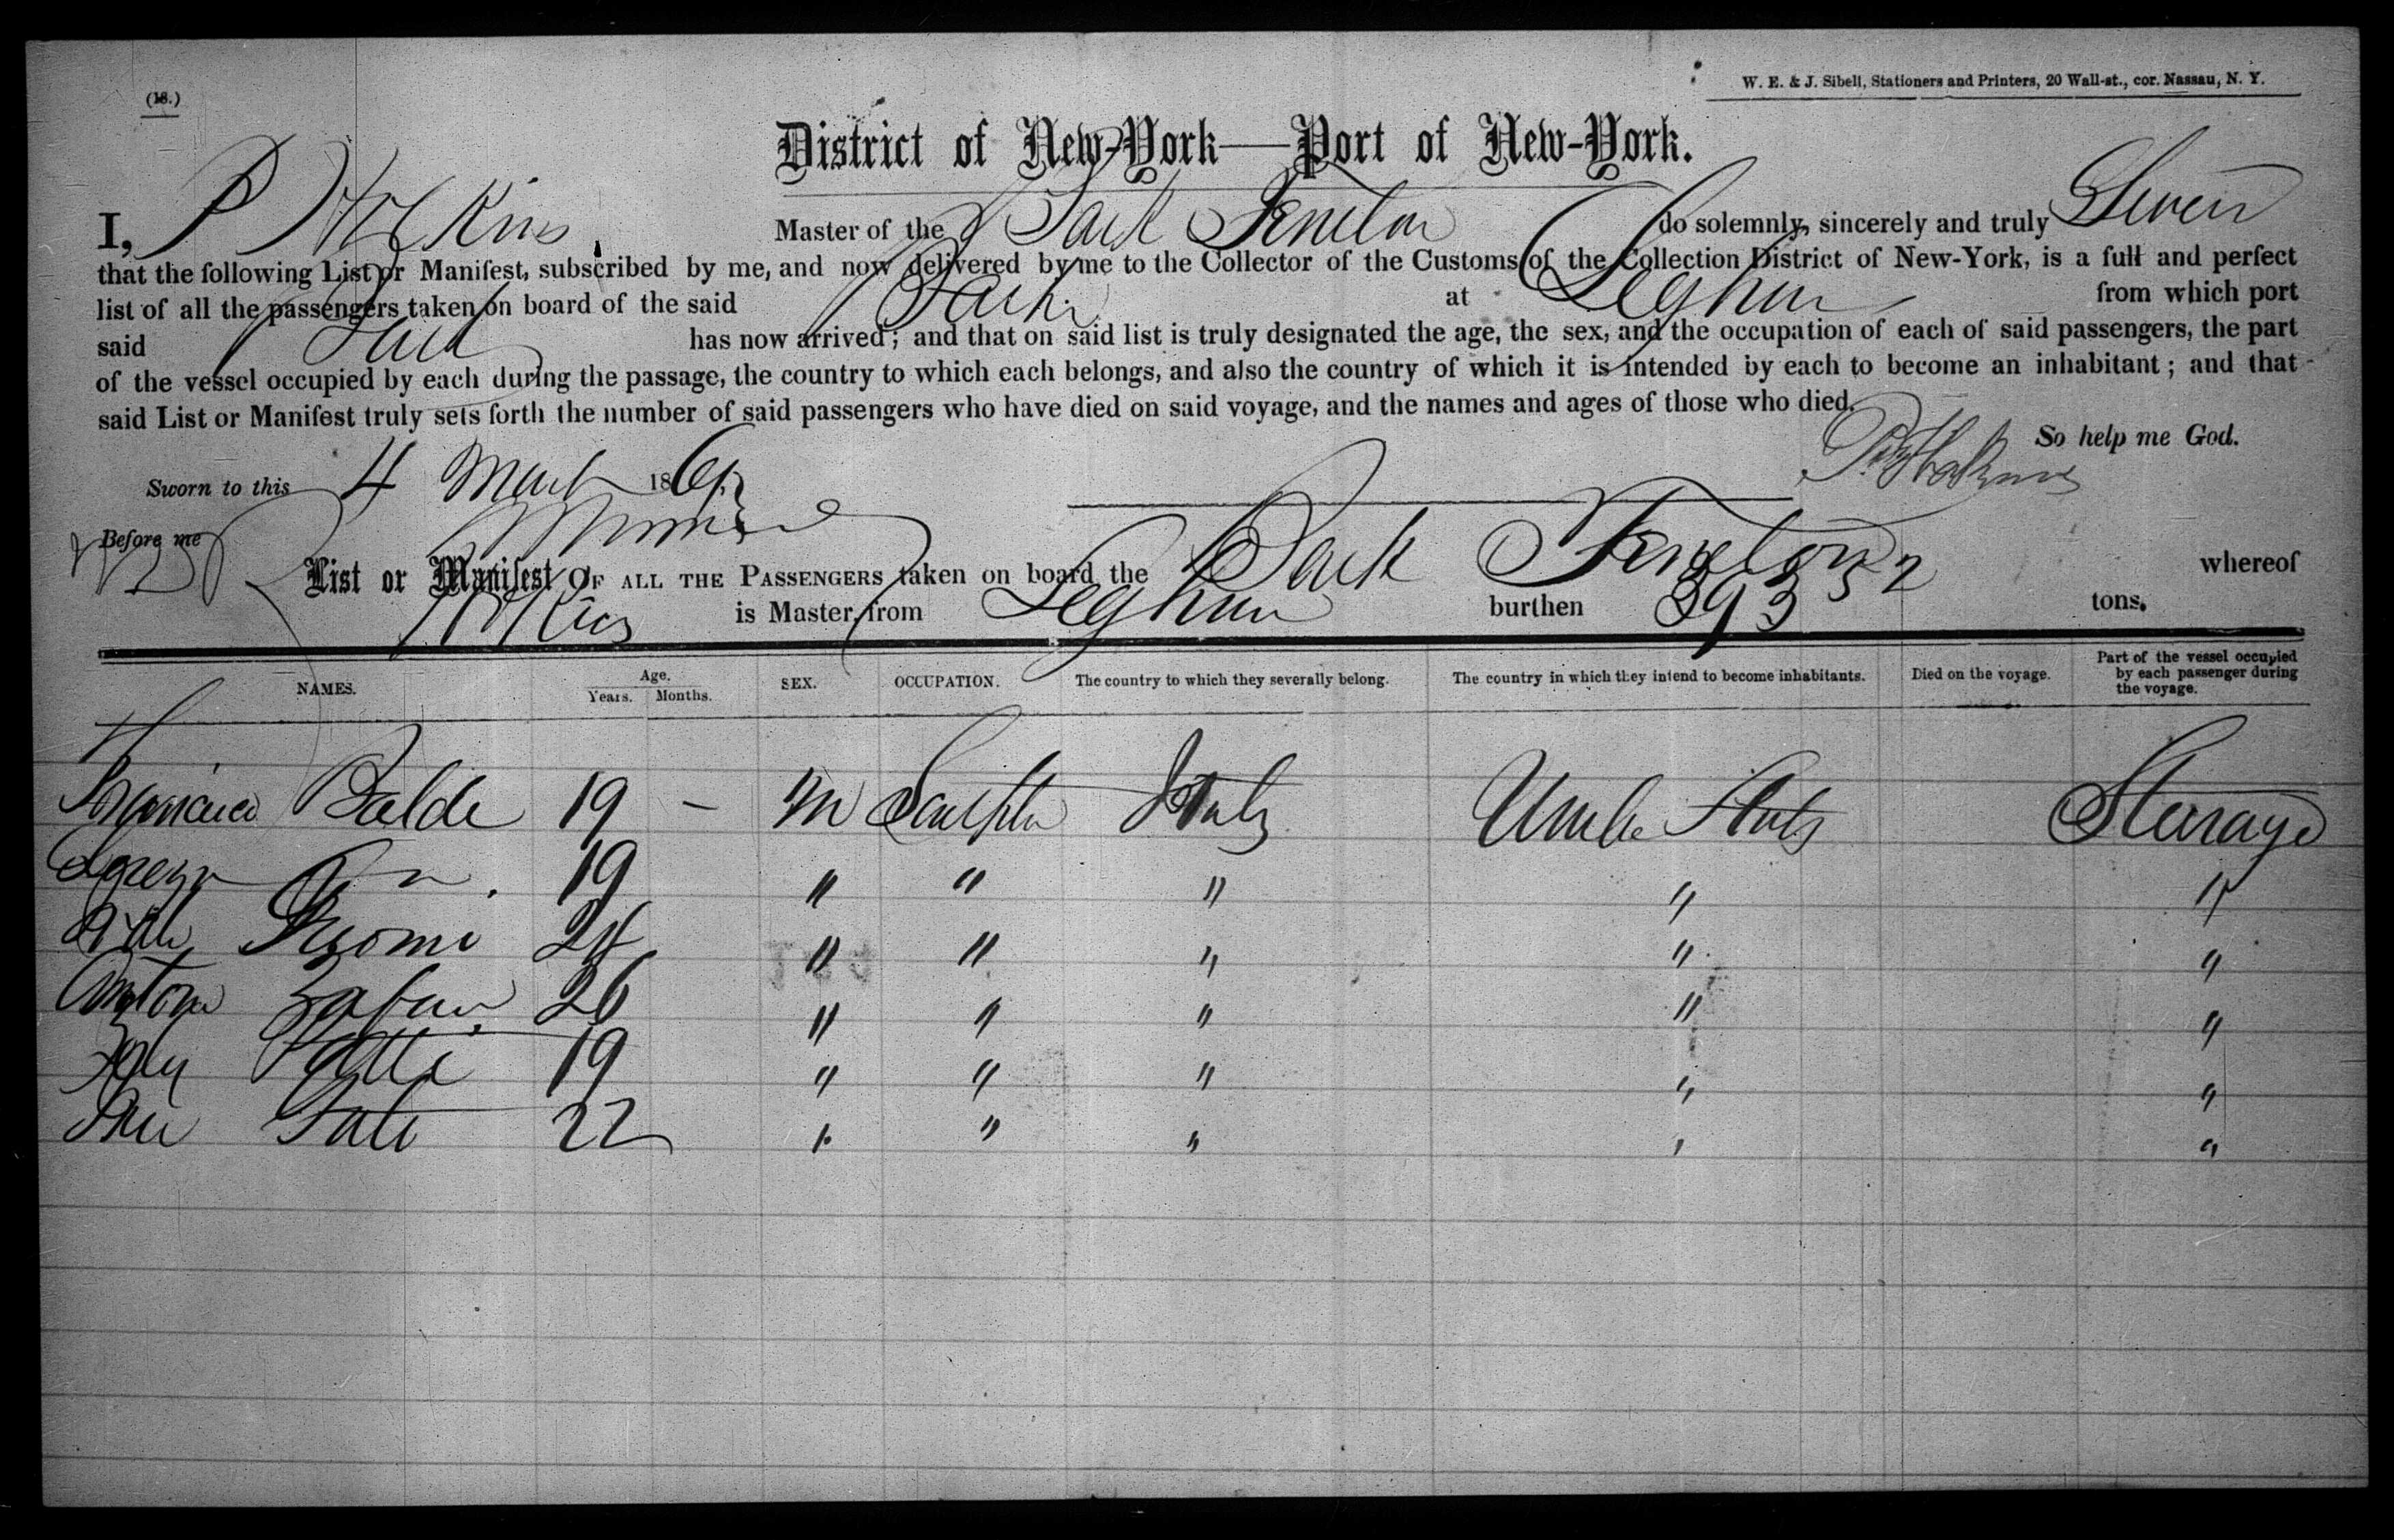 (18.)
W. E. & J. Sibell, Stationers and Printers, 20 Wall-st., cor. Nassau, N. Y.
District of New-York—Port of New-York.
I, P Master of the Bark Fenelon do solemnly, sincerely and truly Swear
that the following List or Manifest, subscribed by me, and now delivered by me to the Collector of the Customs of the Collection District of New-York, is a full and perfect
list of all the passengers taken on board of the said Bark at Leghorn from which port
said Bark has now arrived; and that on said list is truly designated the age, the sex, and the occupation of each of said passengers, the part
of the vessel occupied by each during the passage, the country to which each belongs, and also the country of which it is intended by each to become an inhabitant; and that
said List or Manifest truly sets forth the number of said passengers who have died on said voyage, and the names and ages of those who died.
So help me God.
Sworn to this 4 March 186
Before me
List or Manifest OF ALL THE PASSENGERS taken on board the Bark Fenelon whereof
is Master, from Leghorn burthen 393 52 tons.
NAMES. Age. Years. Months. SEX. OCCUPATION. The country to which they severally belong. The country in which they intend to become inhabitants. Died on the voyage. Part of the vessel occupied by each passenger during the voyage.
Balde 19 – M Sculptor Italy United States Steerage
19 " " " " "
24 " " " " "
Antonio 26 " " " " "
19 " " " " "
22 " " " " "